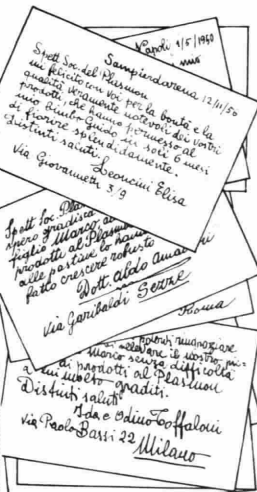 Napoli 1/5/1960
Sampierdarena 12/11/50
Spett. Soc. del Plasmon
mi felicito con voi per la bontà e la
qualità veramente notevoli dei vostri
prodotti, che hanno permesso al
mio Bimbo Guido in soli 6 mesi
di fiorire splendidamente.
Distinti saluti,
Leoncini Elisa
Via Giovannetti 3/9
Spett. Soc. Pla
spero gradisca
figlio Marco
prodotti al Plasmon
alle pastine lo hanno
fatto crescere robusto
Dott. Aldo
Via Garibaldi Sezze
Roma
potervi ringraziare
allevare il nostro
Marco senza difficoltà
di prodotti al Plasmon
molto graditi.
Distinti saluti
Ida e Odino Toffaloni
via Paolo Bassi 22
Milano